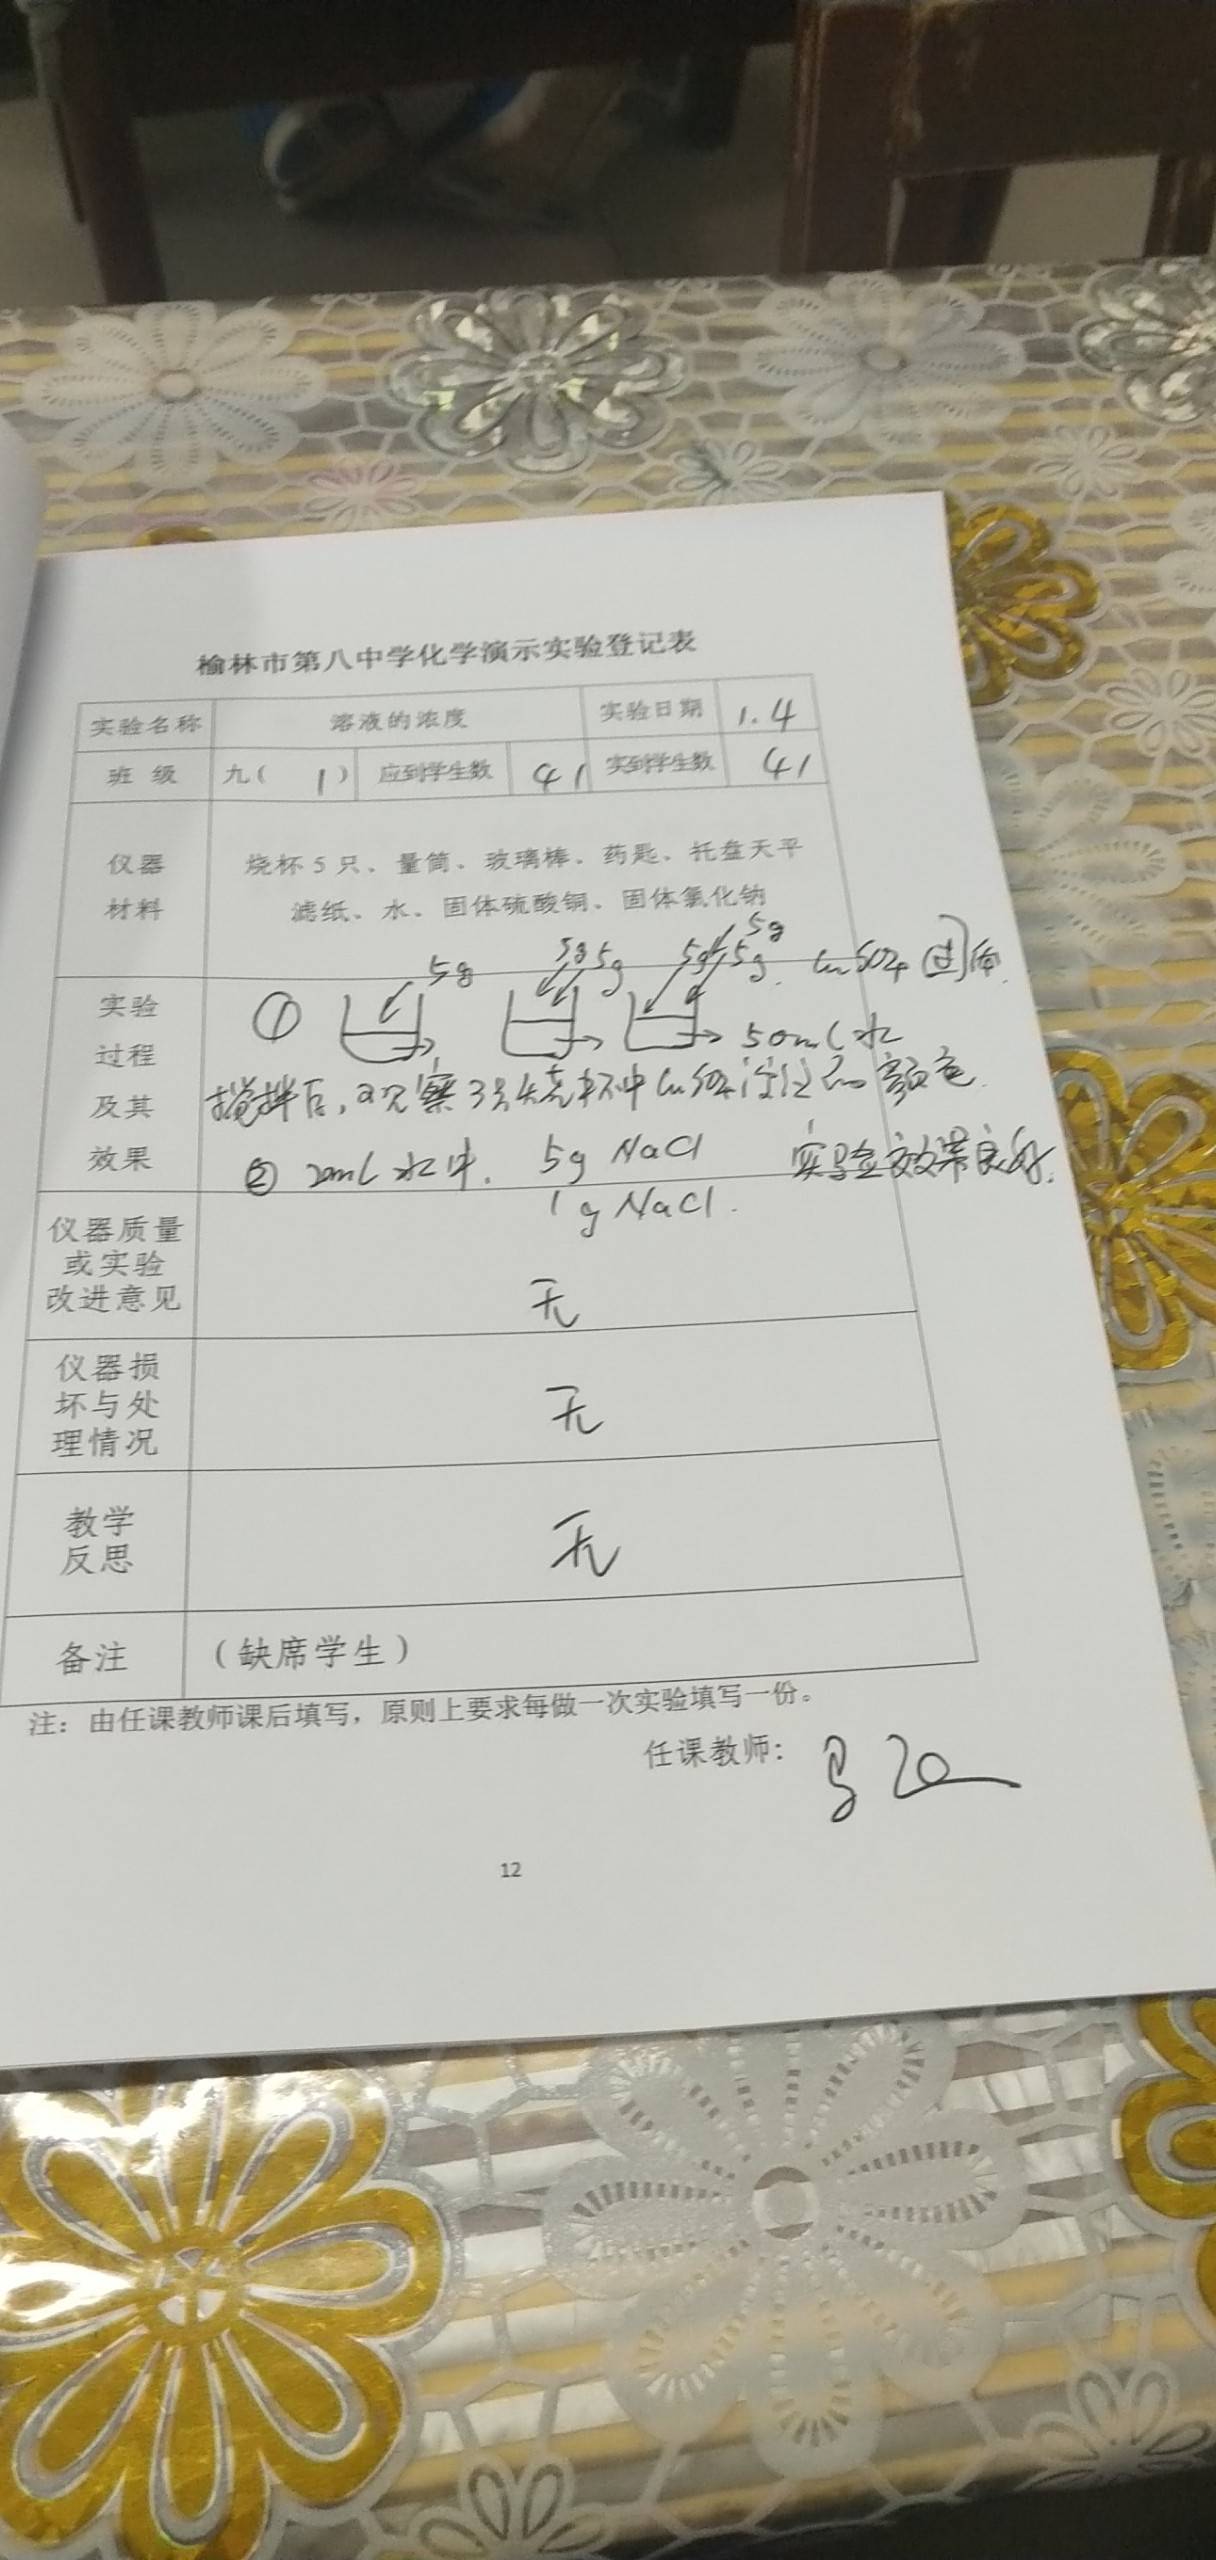 榆林市第八中学化学演示实验登记表
实验名称 溶液的浓度 实验日期 1.4
班 级 九( 1 ) 应到学生数 41 实到学生数 41
仪器
材料
烧杯5只、量筒、玻璃棒、药匙、托盘天平
滤纸、水、固体硫酸铜、固体氯化钠
实验
过程
及其
效果
5g
① 5g 5g 5g 5g 5g CuSO4固体.
50mL水
搅拌后,观察3只烧杯中CuSO4溶液的颜色.
② 2mL水中. 5g NaCl 实验效果良好.
1g NaCl.
仪器质量
或实验
改进意见
无
仪器损
坏与处
理情况
无
教学
反思
无
备注 (缺席学生)
注:由任课教师课后填写,原则上要求每做一次实验填写一份。
任课教师:
12